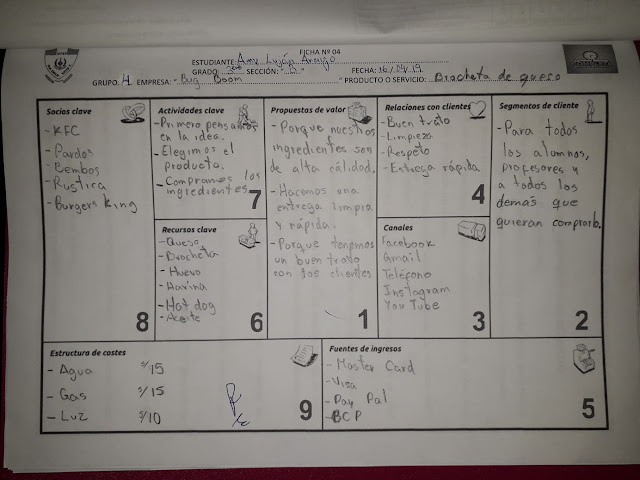 FICHA Nº 04
ESTUDIANTE: Amy Luján Araujo
GRADO: 3ero SECCIÓN: "D" FECHA: 16/04/19
GRUPO: 4 EMPRESA: "Bug Boom" PRODUCTO O SERVICIO: Brocheta de queso
Socios clave
- KFC
- Pardos
- Bembos
- Rustica
- Burgers King
8
Actividades clave
- Primero pensamos
en la idea.
- Elegimos el
producto.
- Compramos los
ingredientes
7
Recursos clave
- Queso
- Brocheta
- Huevo
- Harina
- Hot dog
- Aceite
6
Propuestas de valor
- Porque nuestros
ingredientes son
de alta cálidad.
- Hacemos una
entrega limpia
y rápida.
- Porque tenemos
un buen trato
con los clientes
1
Relaciones con clientes
- Buen trato
- Limpieza
- Respeto
- Entrega rápida
4
Canales
Facebook
Gmail
Teléfono
Instagram
YouTube
3
Segmentos de cliente
- Para todos
los alumnos,
profesores y
a todos los
demás que
quieran comprarlo.
2
Estructura de costes
- Agua S/15
- Gas S/15
- Luz S/10
9
Fuentes de ingresos
- Master Card
- Visa
- Pay Pal
- BCP
5